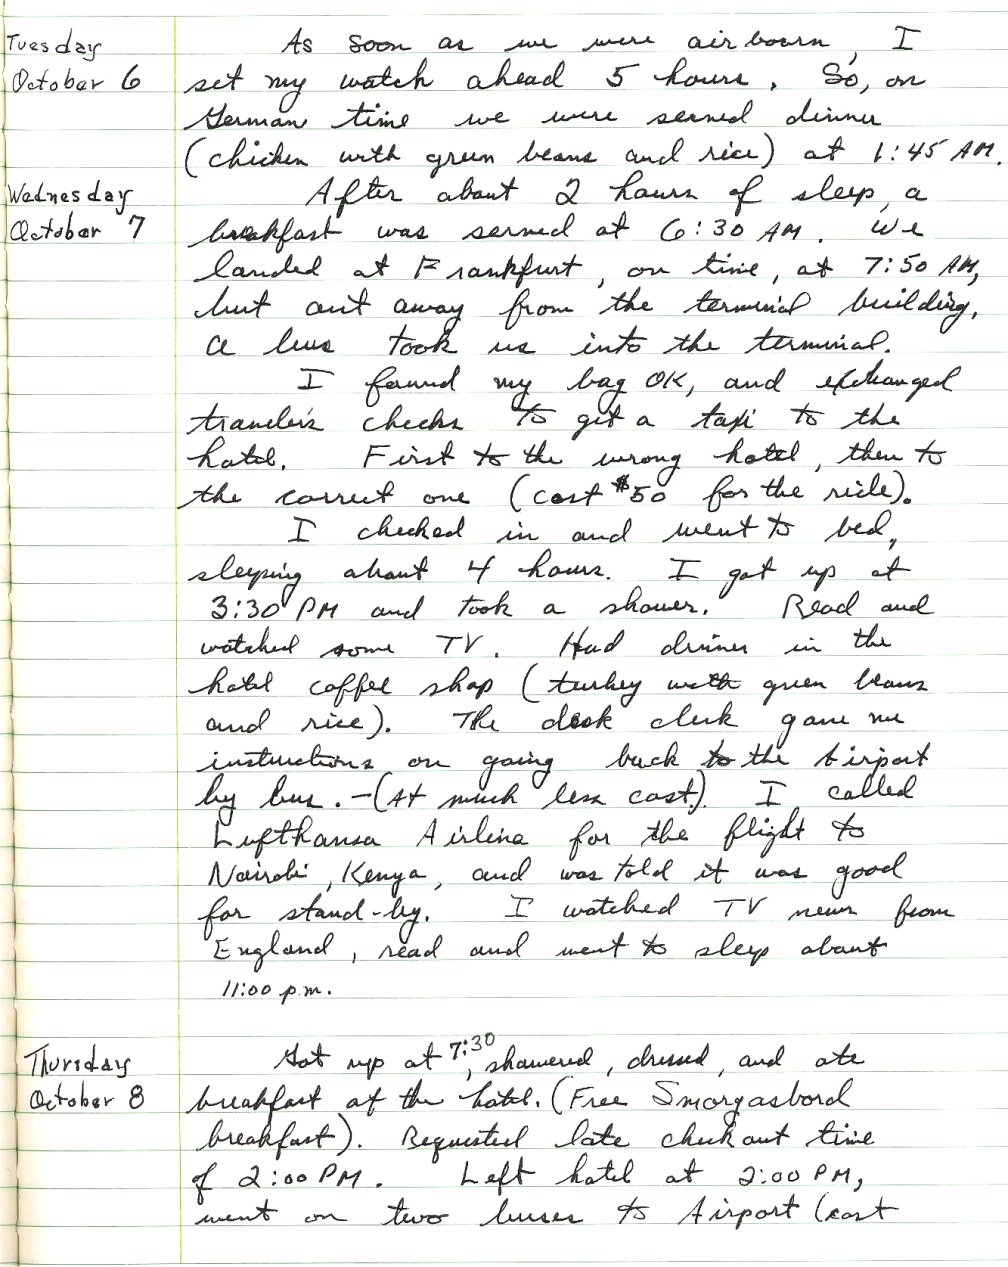 Tuesday
October 6
As soon as we were airbourn, I
set my watch ahead 5 hours. So, on
German time we were served dinner
(chicken with green beans and rice) at 1:45 AM.
Wednesday
October 7
After about 2 hours of sleep, a
breakfast was served at 6:30 AM. We
landed at Frankfurt, on time, at 7:50 AM,
but out away from the terminal building,
a bus took us into the terminal.
I found my bag OK, and exchanged
traveler's checks to get a taxi to the
hotel. First to the wrong hotel, then to
the correct one (cost $50 for the ride).
I checked in and went to bed,
sleeping about 4 hours. I got up at
3:30 PM and took a shower. Read and
watched some TV. Had dinner in the
hotel coffee shop (turkey with green beans
and rice). The desk clerk gave me
instructions on going back to the Airport
by bus. - (At much less cost). I called
Lufthansa Airline for the flight to
Nairobi, Kenya, and was told it was good
for stand-by. I watched TV news from
England, read and went to sleep about
11:00 p.m.
Thursday
October 8
Got up at 7:30, showered, dressed, and ate
breakfast at the hotel. (Free Smorgasbord
breakfast). Requested late check out time
of 2:00 PM. Left hotel at 2:00 PM,
went on two buses to Airport (cost